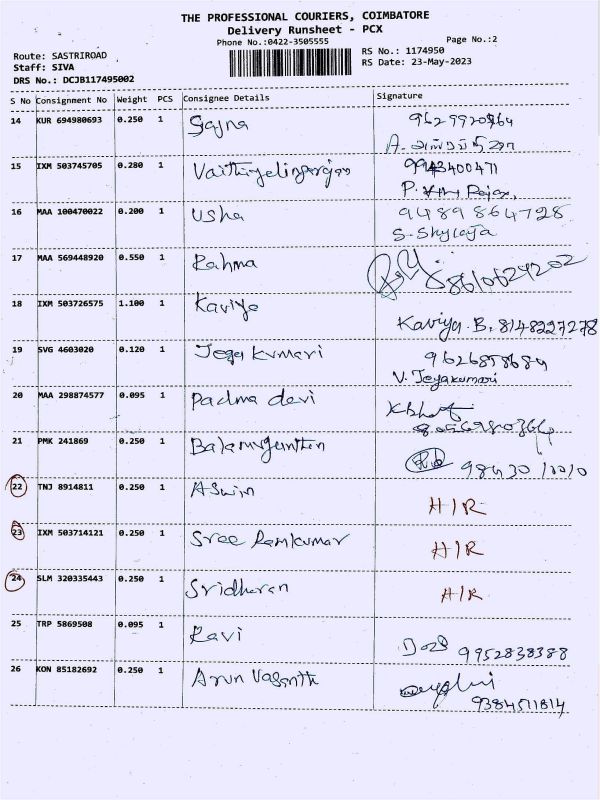 THE PROFESSIONAL COURIERS, COIMBATORE
Delivery Runsheet - PCX
Phone No.:0422-3505555
Page No.:2
Route: SASTRIROAD
RS No.: 1174950
Staff: SIVA
RS Date: 23-May-2023
DRS No.: DCJB117495002
S No Consignment No Weight PCS Consignee Details Signature
14 KUR 694980693 0.250 1 Sajna
A.
15 IXM 503745705 0.280 1 9943400471
P. Rajan
16 MAA 100470022 0.200 1 Usha 9489864728
S. Shylaja
17 MAA 569448920 0.550 1 Rahma 8610629202
18 IXM 503726575 1.100 1 Kaviya
Kaviya.B, 8148227278
19 SVG 4603020 0.120 1 Jeya kumari
V. Jeyakumari
20 MAA 298874577 0.095 1 Padma devi
21 PMK 241869 0.250 1 98430 10010
22 TNJ 8914811 0.250 1 Aswin H/R
23 IXM 503714121 0.250 1 Sree Ramkumar H/R
24 SLM 320335443 0.250 1 Sridharan H/R
25 TRP 5869508 0.095 1 Ravi 9952838388
26 KON 85182692 0.250 1 Arun Vasanth
9384511814